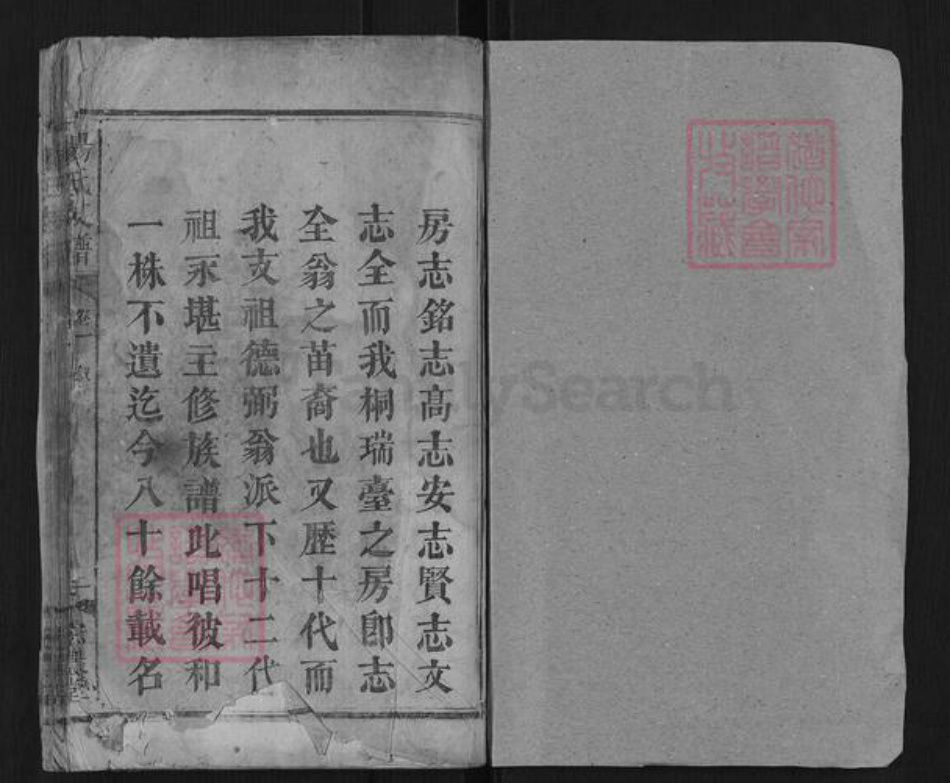 房志銘志高志安志賢志文
志全而我桐瑞臺之房卽志
全翁之苗裔也又歷十代而
我支祖德弼翁派下十二代
祖永堪主修族譜此唱彼和
一株不遺迄今八十餘載名
楊氏支譜
卷一
FamilySearch